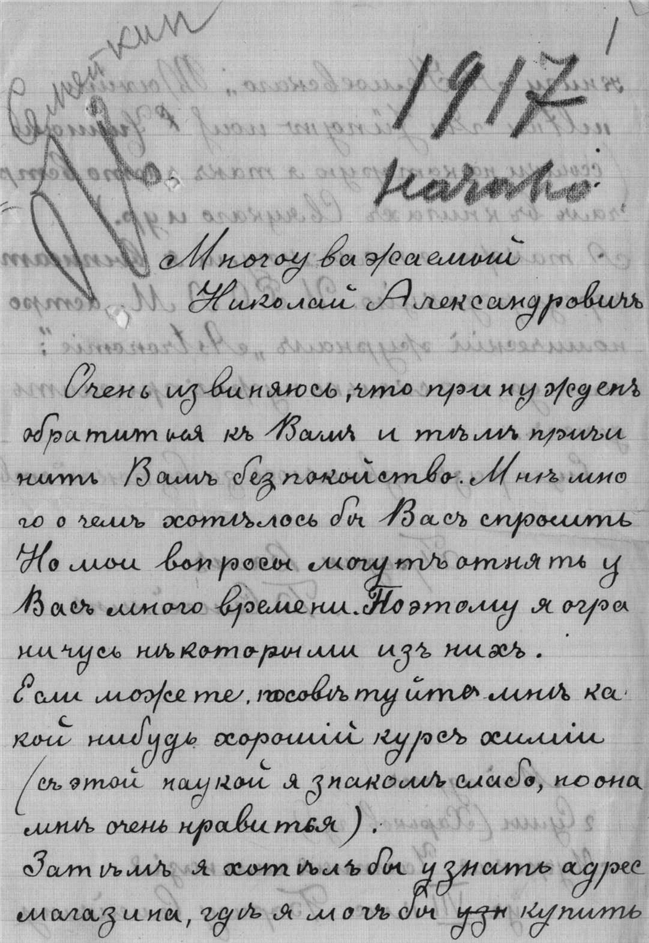 1
Семейкин
1917
начало
Многоуважаемый
Николай Александровичъ
Очень извиняюсь, что принужденъ
обратиться къ Вамъ и тѣмъ причи
нить Вамъ безпокойство. Мнѣ мно
го о чемъ хотѣлось бы Васъ спросить
Но мои вопросы могутъ отнять у
Васъ много времени. Поэтому я огра
ничусь нѣкоторыми изъ нихъ.
Если можете, посовѣтуйте мнѣ ка
кой нибудь хорошій курсъ химіи
(съ этой наукой я знакомъ слабо, но она
мнѣ очень нравиться).
Затѣмъ я хотѣлъ бы узнать адрес
магазина, гдѣ я могъ бы узн купить